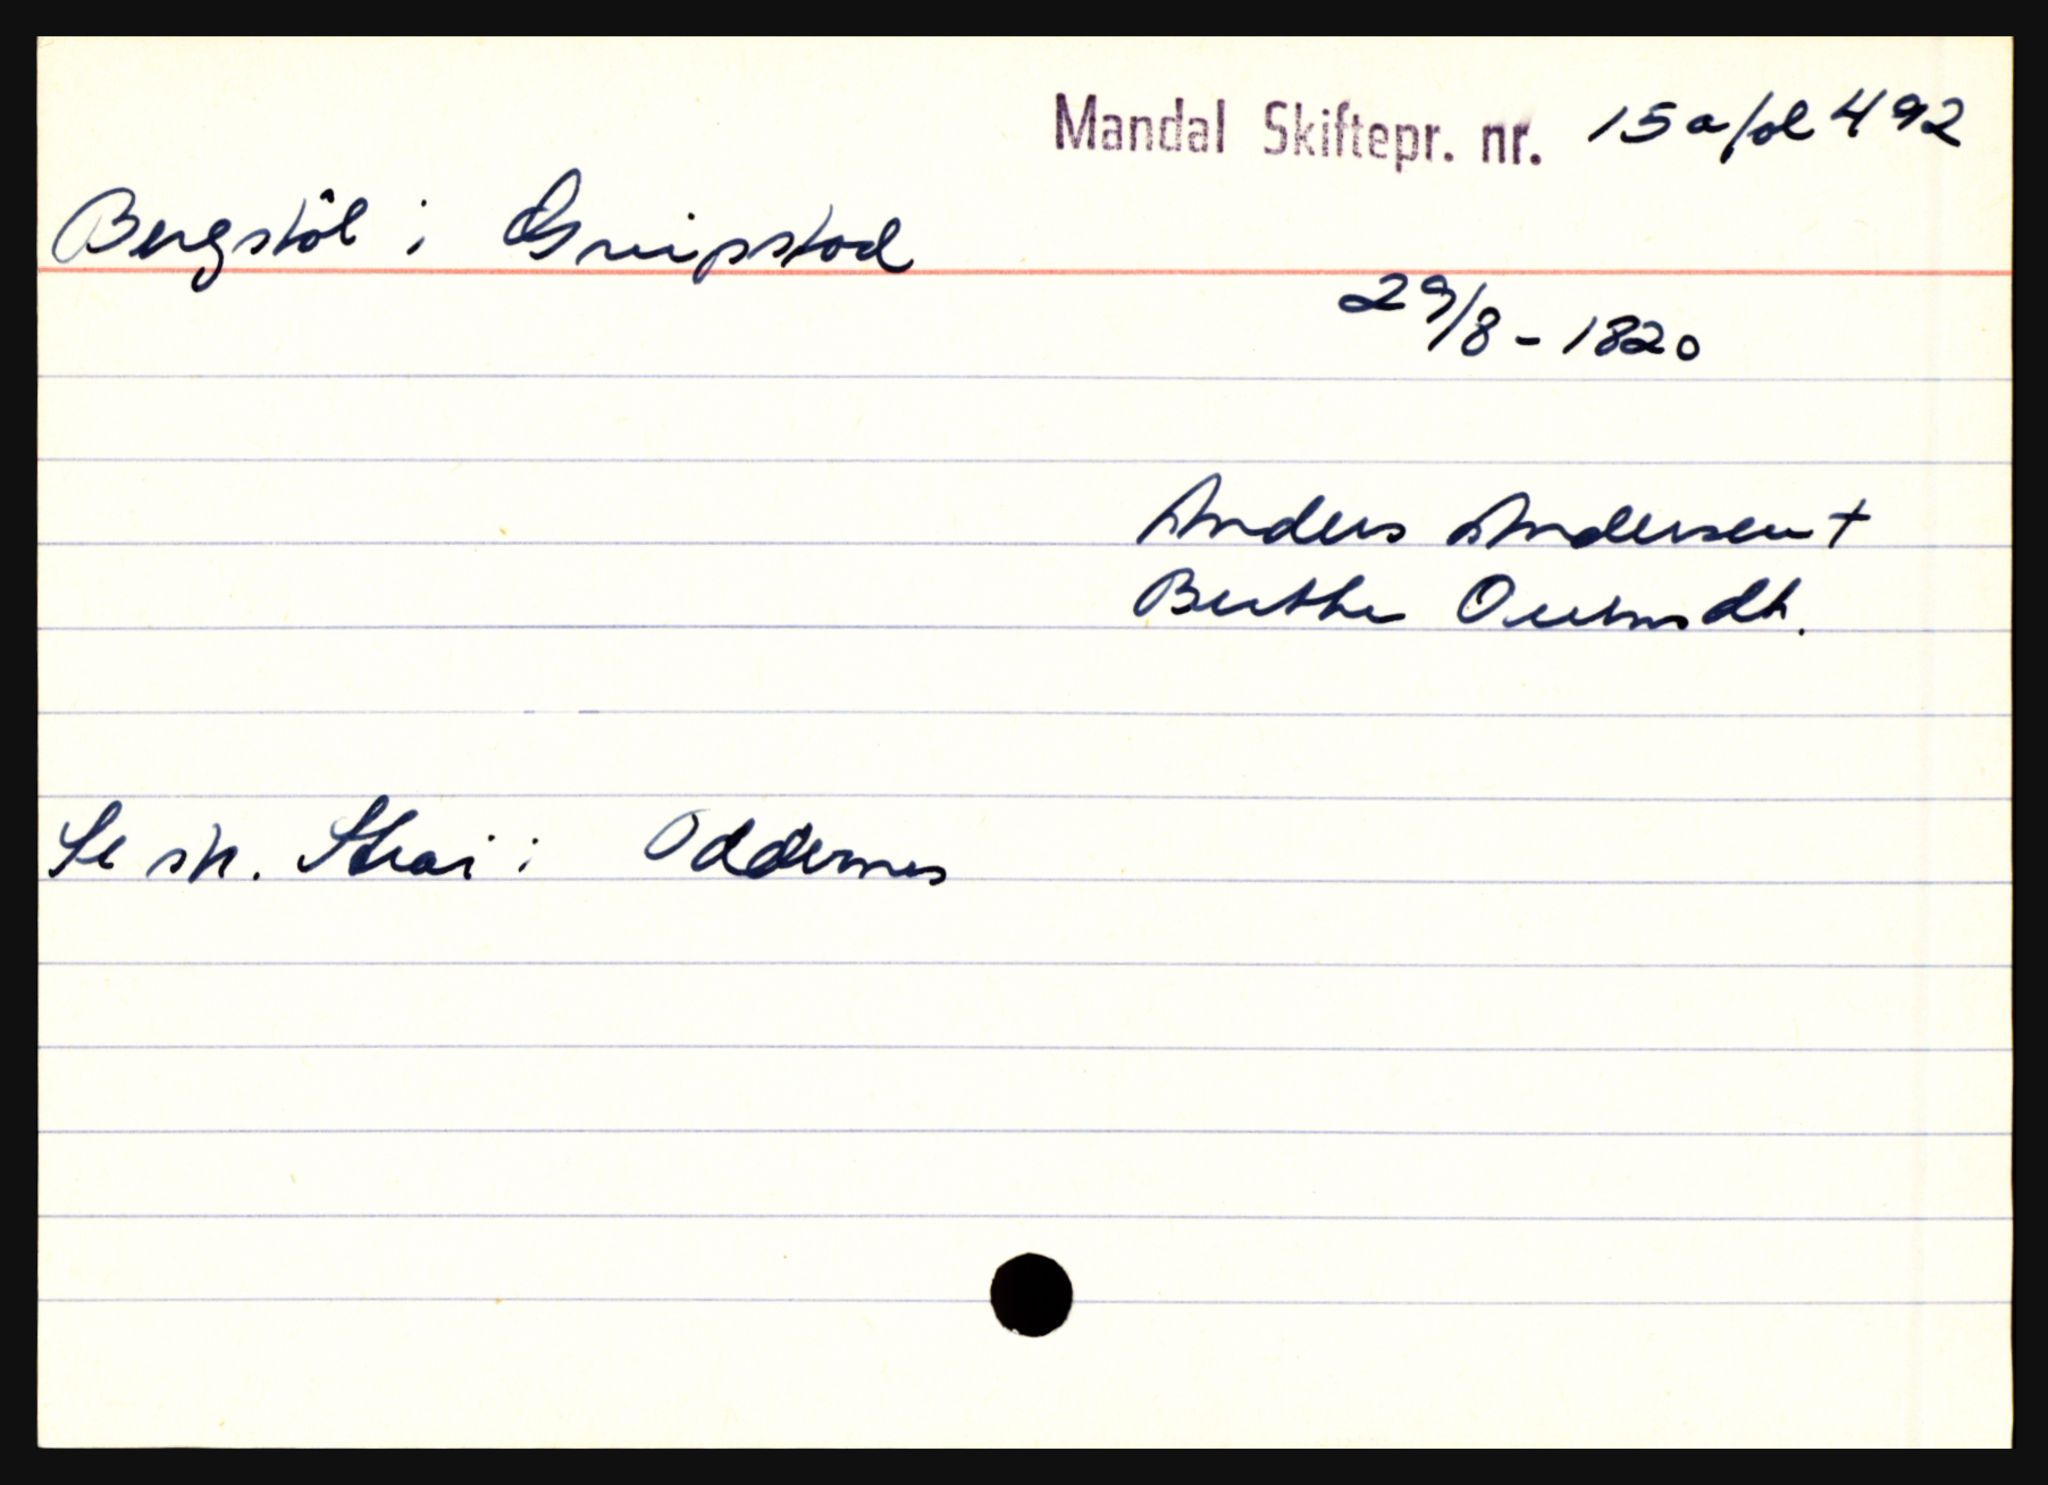 Mandal Skiftepr. nr. 15a fol 492
Bergstöl i Greipstad
29/8-1820
Anders Andersen +
Berthe Ouensdt.
Se sk. Strai i Oddernes